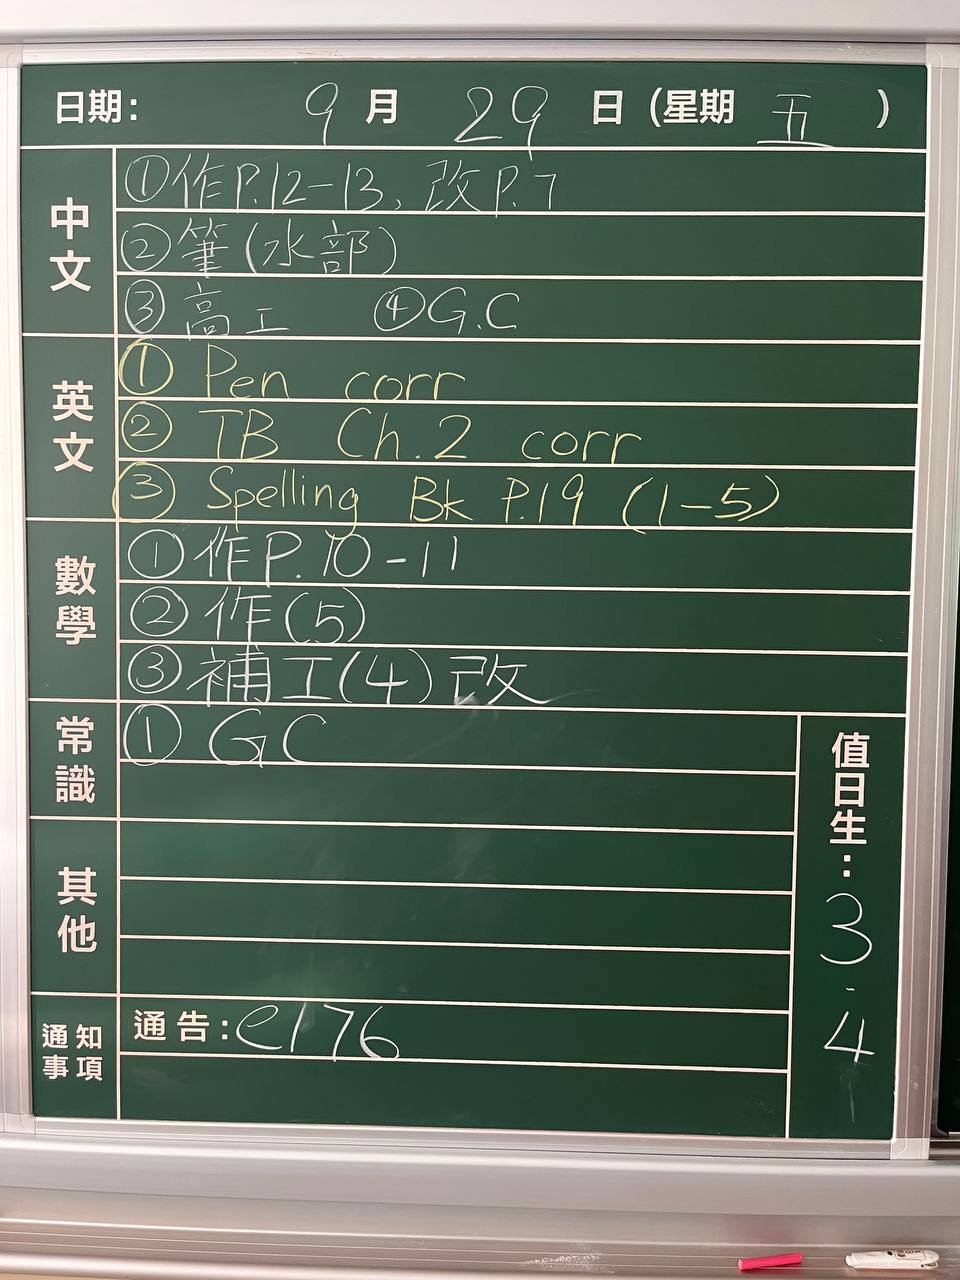 日期: 9 月 29 日 (星期 五 )
中文
①作P.12-13, 改P.7
②筆(水部)
③高工 ④G.C
英文
① Pen corr
② TB Ch.2 corr
③ Spelling Bk P.19 (1-5)
數學
①作P.10-11
②作(5)
③補工(4)改
常識
① GC
其他
值日生:
3
.
4
通知事項
通告:e176